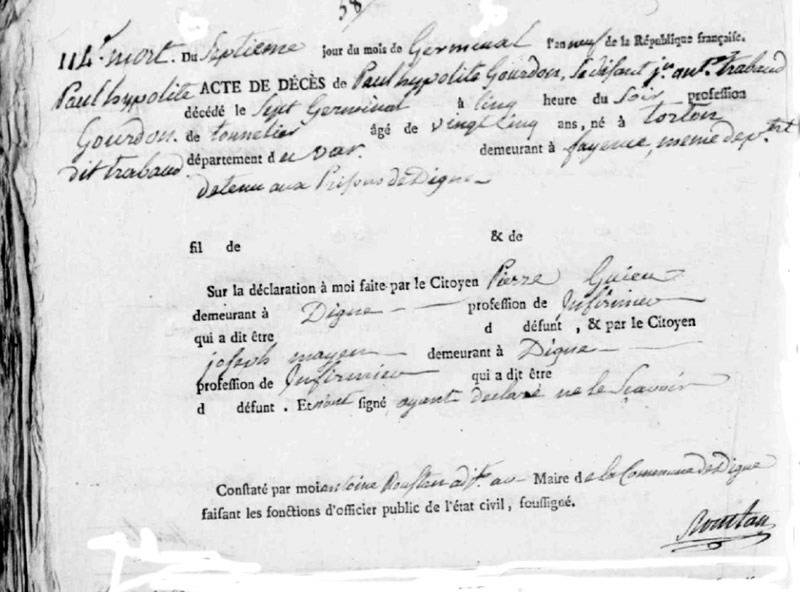 58
114.e mort. Du Septieme jour du mois de Germinal l'an neuf de la République française.
Paul hypolite Gourdon. dit trabaud.
ACTE DE DÉCÈS de Paul hypolite Gourdon, Se disant trabaud
décédé le Sept Germinal à Cinq heure du Soir profession
de tonnelier âgé de vingt Cinq ans, né à tortou
département d u var. demeurant à fayence, meme dep.t
detenu aux Prisons de Digne
fil de & de
Sur la déclaration à moi faite par le Citoyen Pierre Guieu
demeurant à Digne profession de Infirmier
qui a dit être d défunt, & par le Citoyen
joseph mayen demeurant à Digne
profession de Infirmier qui a dit être
d défunt. Et n'ont signé ayant declaré ne le Scavoir
Constaté par moi antoine Roustan adj.t au Maire d e la Commune de Digne
faisant les fonctions d'officier public de l'état civil, soussigné.
Roustan